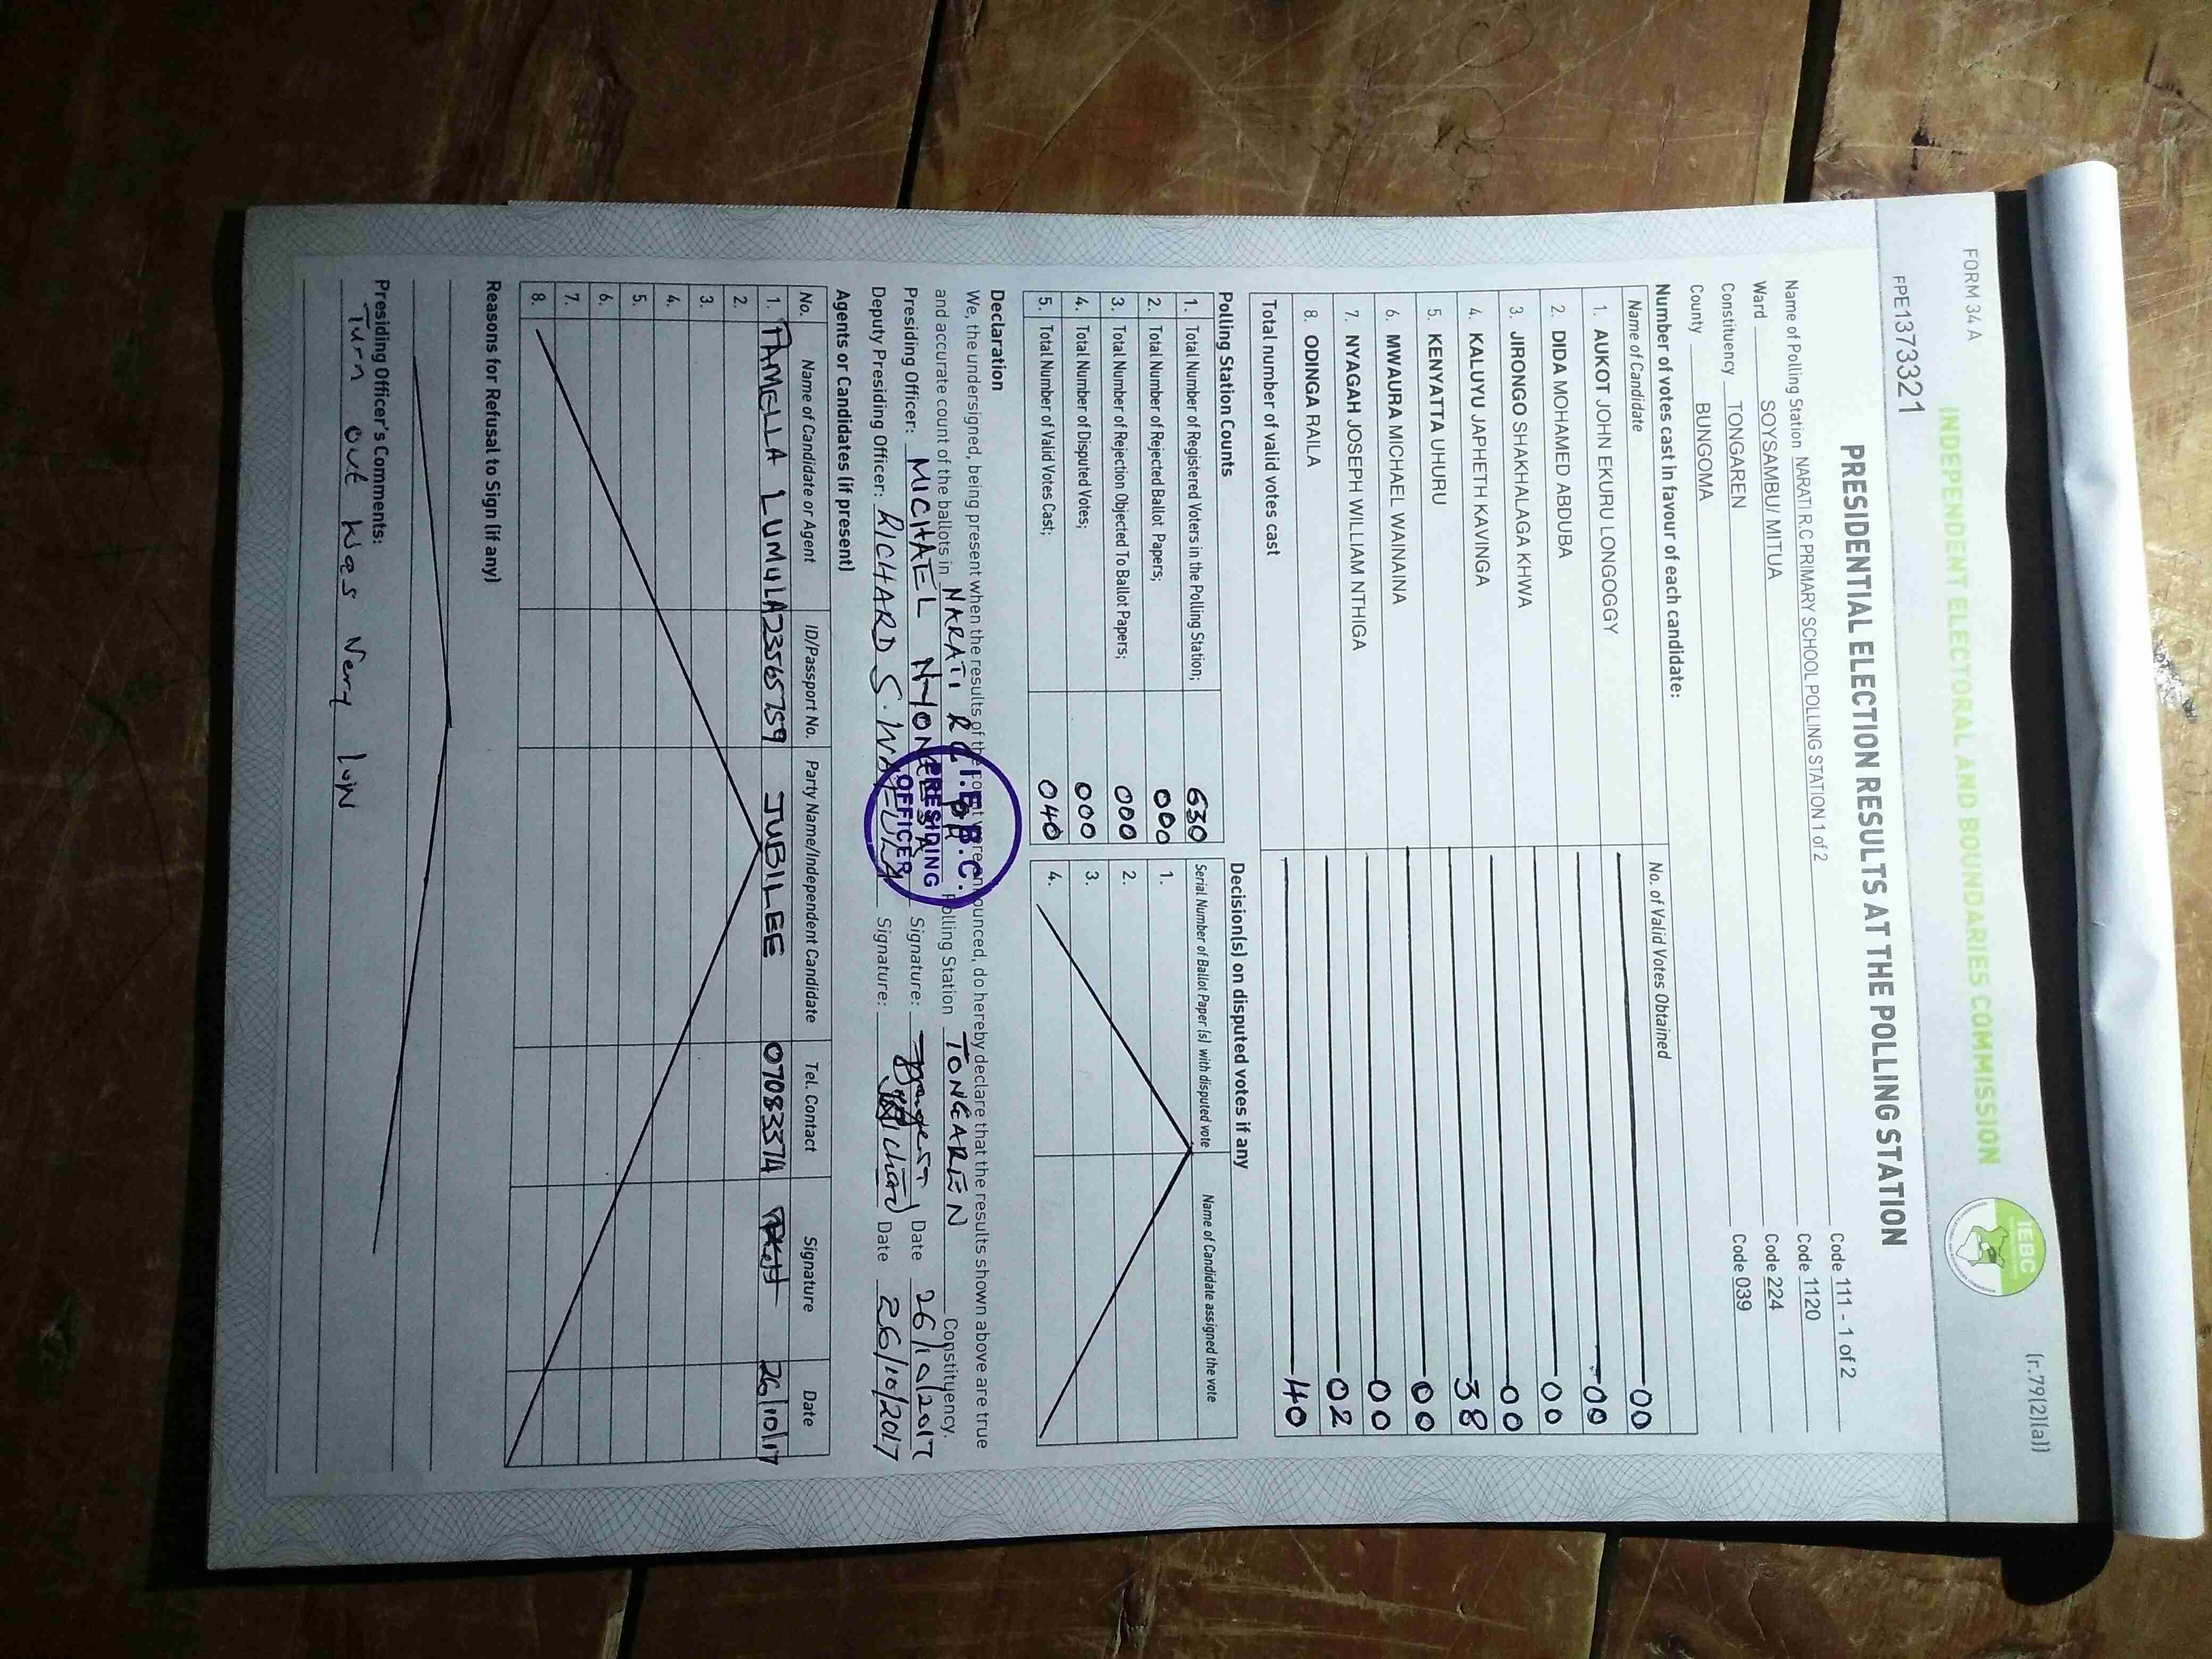 FORM 34 A
(r.79(2)(a))
INDEPENDENT ELECTORAL AND BOUNDARIES COMMISSION
IEBC
FPE1373321
PRESIDENTIAL ELECTION RESULTS AT THE POLLING STATION
Name of Polling Station NARATI R.C PRIMARY SCHOOL POLLING STATION 1 of 2 Code 111 - 1 of 2
Ward SOYSAMBU/ MITUA Code 1120
Constituency TONGAREN Code 224
County BUNGOMA Code 039
Number of votes cast in favour of each candidate:
Name of Candidate No. of Valid Votes Obtained
1. AUKOT JOHN EKURU LONGOGGY 00
2. DIDA MOHAMED ABDUBA 00
3. JIRONGO SHAKHALAGA KHWA 00
4. KALUYU JAPHETH KAVINGA 00
5. KENYATTA UHURU 38
6. MWAURA MICHAEL WAINAINA 00
7. NYAGAH JOSEPH WILLIAM NTHIGA 00
8. ODINGA RAILA 02
Total number of valid votes cast 40
Polling Station Counts
1. Total Number of Registered Voters in the Polling Station; 630
2. Total Number of Rejected Ballot Papers; 000
3. Total Number of Rejection Objected To Ballot Papers; 000
4. Total Number of Disputed Votes; 000
5. Total Number of Valid Votes Cast; 040
Decision(s) on disputed votes if any
Serial Number of Ballot Paper (s) with disputed vote Name of Candidate assigned the vote
1.
2.
3.
4.
Declaration
We, the undersigned, being present when the results of the count were announced, do hereby declare that the results shown above are true
and accurate count of the ballots in NARATI RC Polling Station TONGAREN Constituency.
Presiding Officer: MICHAEL Signature: Date 26/10/2017
Deputy Presiding Officer: RICHARD S. WAFULA Signature: Date 26/10/2017
I.E.B.C.
PRESIDING
OFFICER
Agents or Candidates (if present)
No. Name of Candidate or Agent ID/Passport No. Party Name/Independent Candidate Tel. Contact Signature Date
1. PAMELLA LUMULA 23565759 JUBILEE 070833574 26/10/17
2.
3.
4.
5.
6.
7.
8.
Reasons for Refusal to Sign (if any)
Presiding Officer's Comments:
Turn out was very low